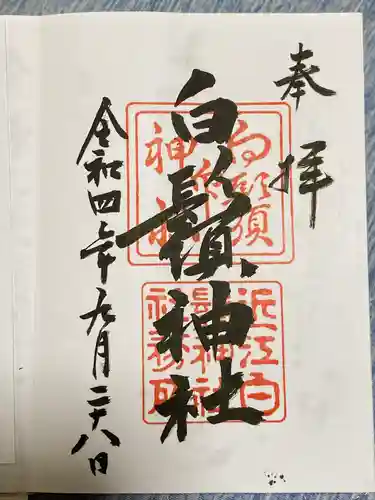 奉拝
白鬚神社
令和四年九月二十八日
白鬚
神社
近江白
鬚神社
社務所